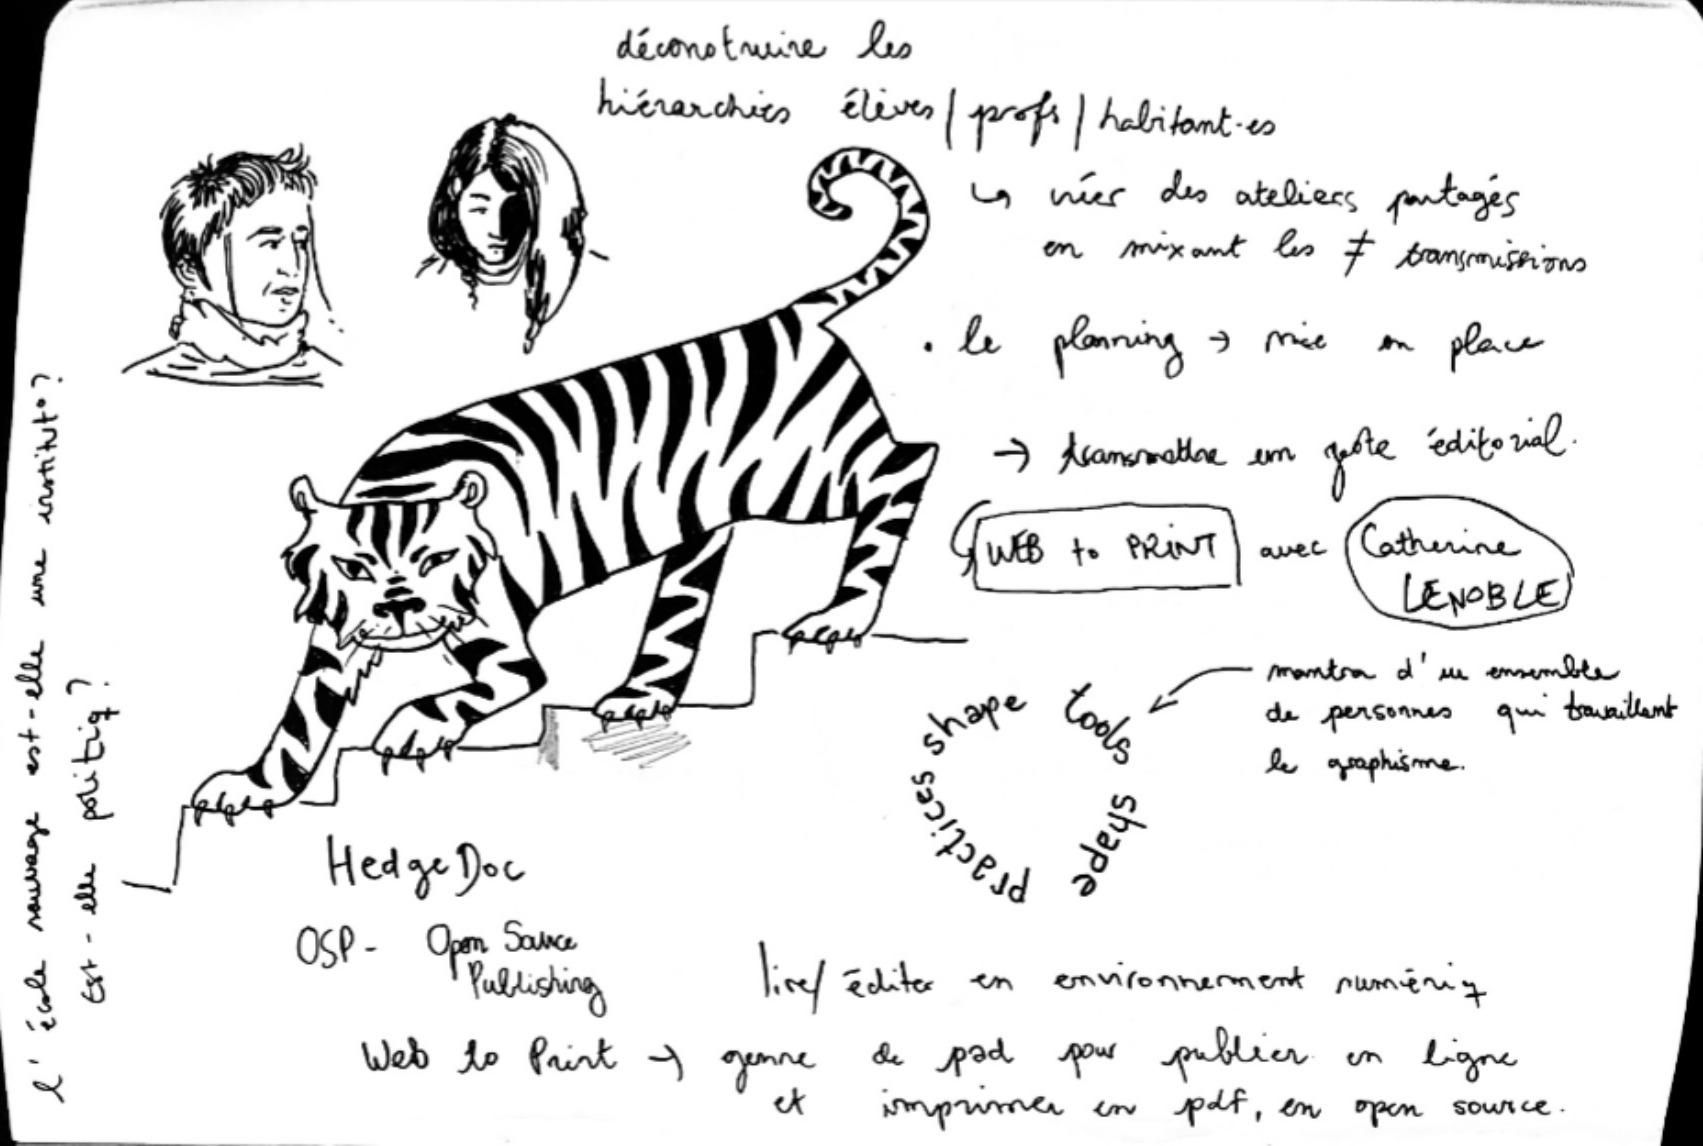 déconstruire les
hiérarchies élèves / profs / habitant·es
↳ créer des ateliers partagés
en mixant les ≠ transmissions
• le planning → mise en place
→ transmettre un geste éditorial.
WEB to PRINT avec Catherine
LENOBLE
mantra d'un ensemble
de personnes qui travaillent
le graphisme.
practices shape tools shape
HedgeDoc
OSP - Open Source
Publishing
lire/ éditer en environnement numériq
Web to Print → genre de pad pour publier en ligne
et imprimer en pdf, en open source.
l'école sauvage est-elle une institut°?
Est-elle politiq?